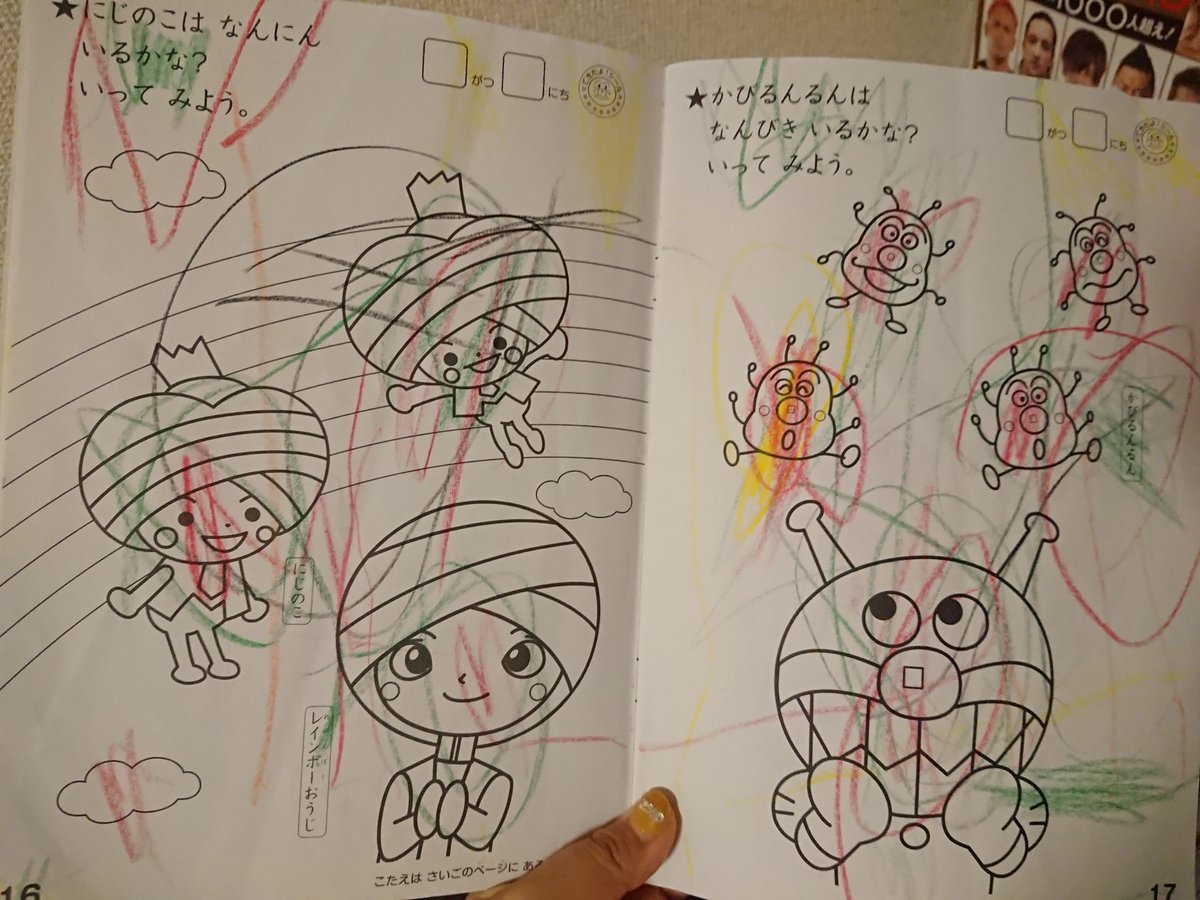 ★にじのこは なんにん
いるかな?
いって みよう。
がつ
にち
にじのこ
レインボーおうじ
こたえは さいごのページに ある
16
★かびるんるんは
なんびき いるかな?
いって みよう。
がつ
にち
かびるんるん
17
000人超え!